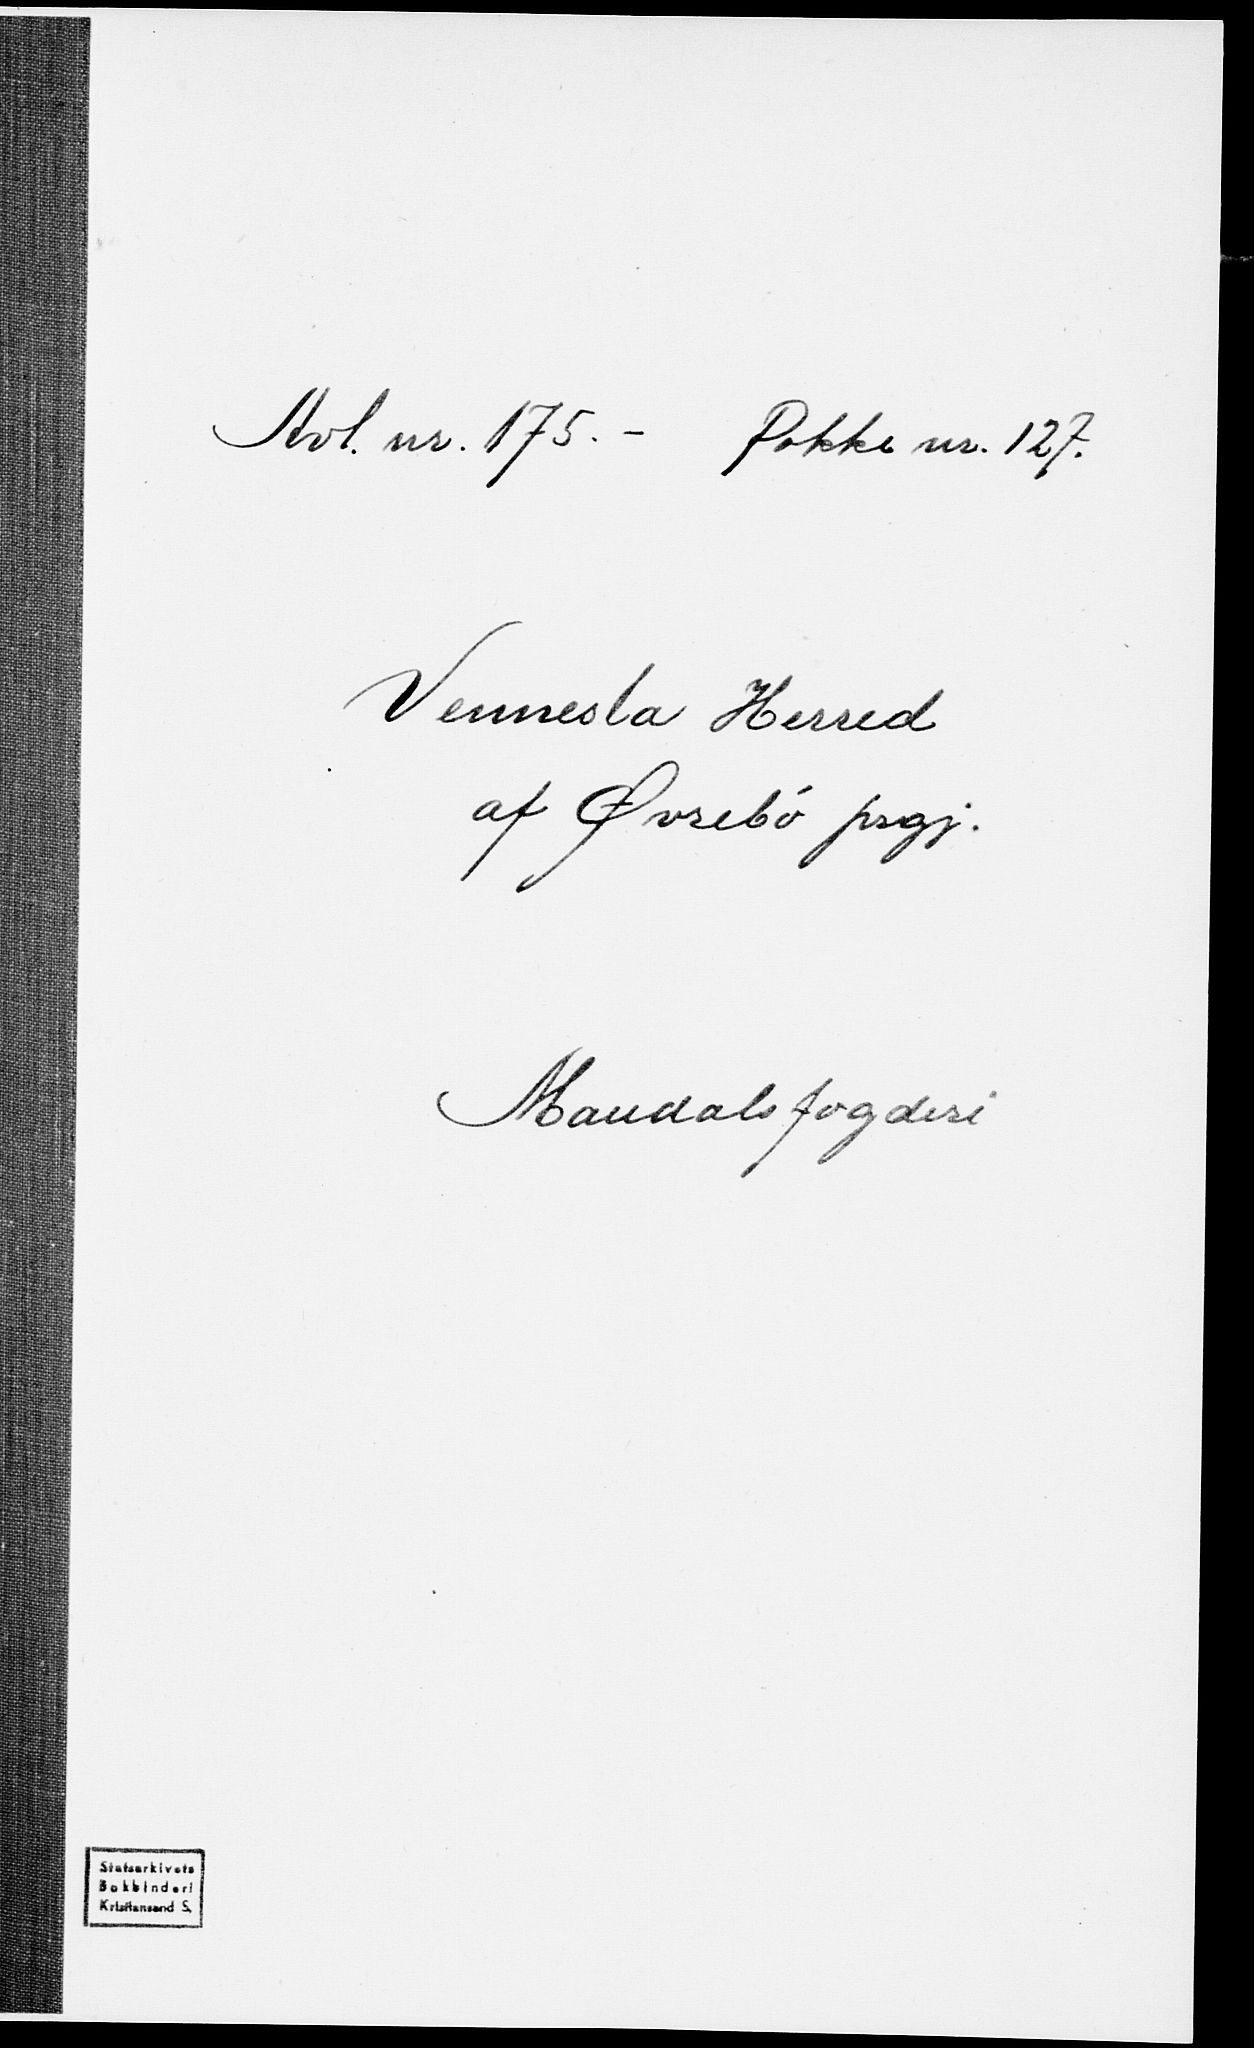 Avl. nr. 175. – Pakke nr. 127.
Vennesla Herred
af Øvrebó prgj.
Mandals fogderi
Statsarkivets
Bokbinderi
Kristiansand S.